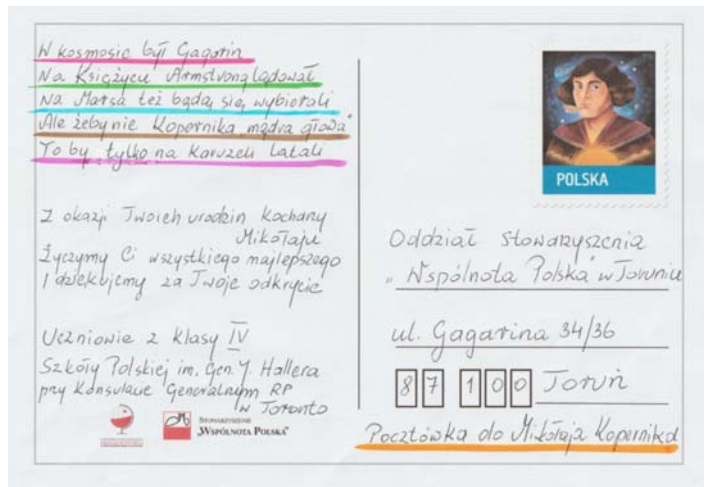 W kosmosie był Gagarin
Na Księżycu Armstrong lądował
Na Marsa też będą się wybierali
Ale żeby nie Kopernika „mądra głowa”
To by tylko na karuzeli latali
Z okazji Twoich urodzin Kochany
Mikołaju
Życzymy Ci wszystkiego najlepszego
I dziękujemy za Twoje odkrycie
Uczniowie z klasy IV
Szkoły Polskiej im. Gen. J. Hallera
przy Konsulacie Generalnym RP
w Toronto
STOWARZYSZENIE
„WSPÓLNOTA POLSKA”
POLSKA
Oddział Stowarzyszenia
„Wspólnota Polska” w Toruniu
ul. Gagarina 34/36
87 100 Toruń
Pocztówka do Mikołaja Kopernika